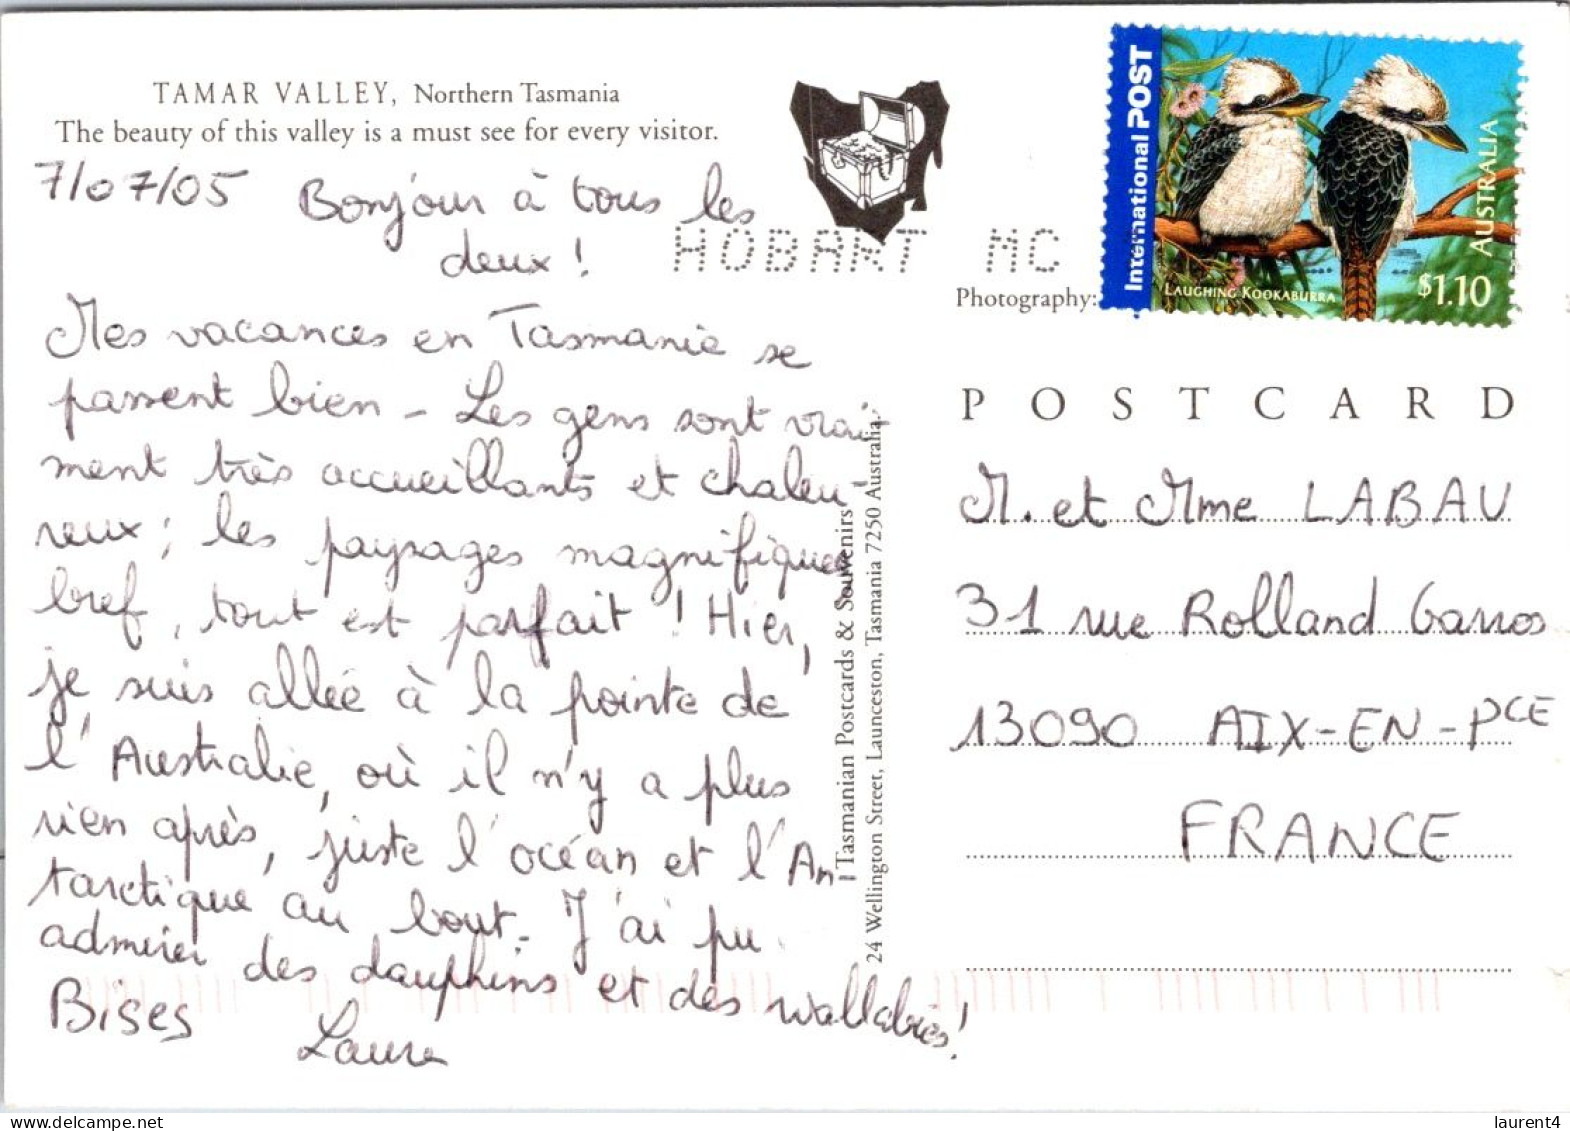 TAMAR VALLEY, Northern Tasmania
The beauty of this valley is a must see for every visitor.
7/07/05 Bonjour à tous les
deux !
Mes vacances en Tasmanie se
passent bien - Les gens sont vrai-
ment très accueillants et chaleu-
reux ; les paysages magnifiques
bref, tout est parfait ! Hier,
je suis allée à la pointe de
l'Australie, où il n'y a plus
rien après, juste l'océan et l'An-
tarctique au bout. J'ai pu
admirer des dauphins et des wallabies !
Bises
Laura
HOBART MC
Photography:
International POST
LAUGHING KOOKABURRA
$1.10
AUSTRALIA
Tasmanian Postcards & Souvenirs
24 Wellington Street, Launceston, Tasmania 7250 Australia.
POSTCARD
M. et Mme LABAU
31 rue Rolland Garros
13090 AIX-EN-PCE
FRANCE
www.delcampe.net
laurent4